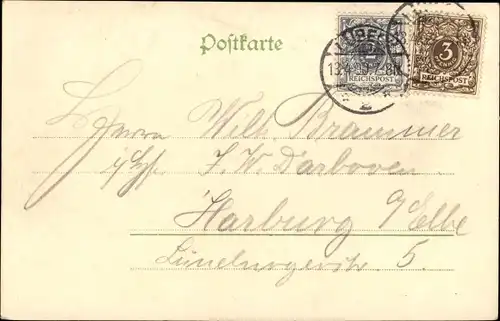 Postkarte
LÜBECK
2
REICHSPOST
3
REICHSPOST
Herrn Wilh. Brammer
J. W. Darboven
Harburg a/Elbe
Lüneburgerstr. 5.